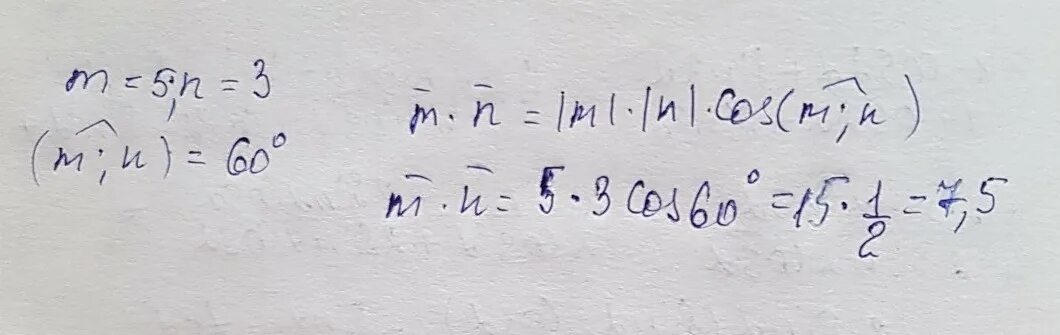 m = 5; n = 3
(m; n) = 60°
m̄ · n̄ = |m| · |n| · cos(m; n)
m̄ · n̄ = 5 · 3 cos 60° = 15 · 1/2 = 7,5